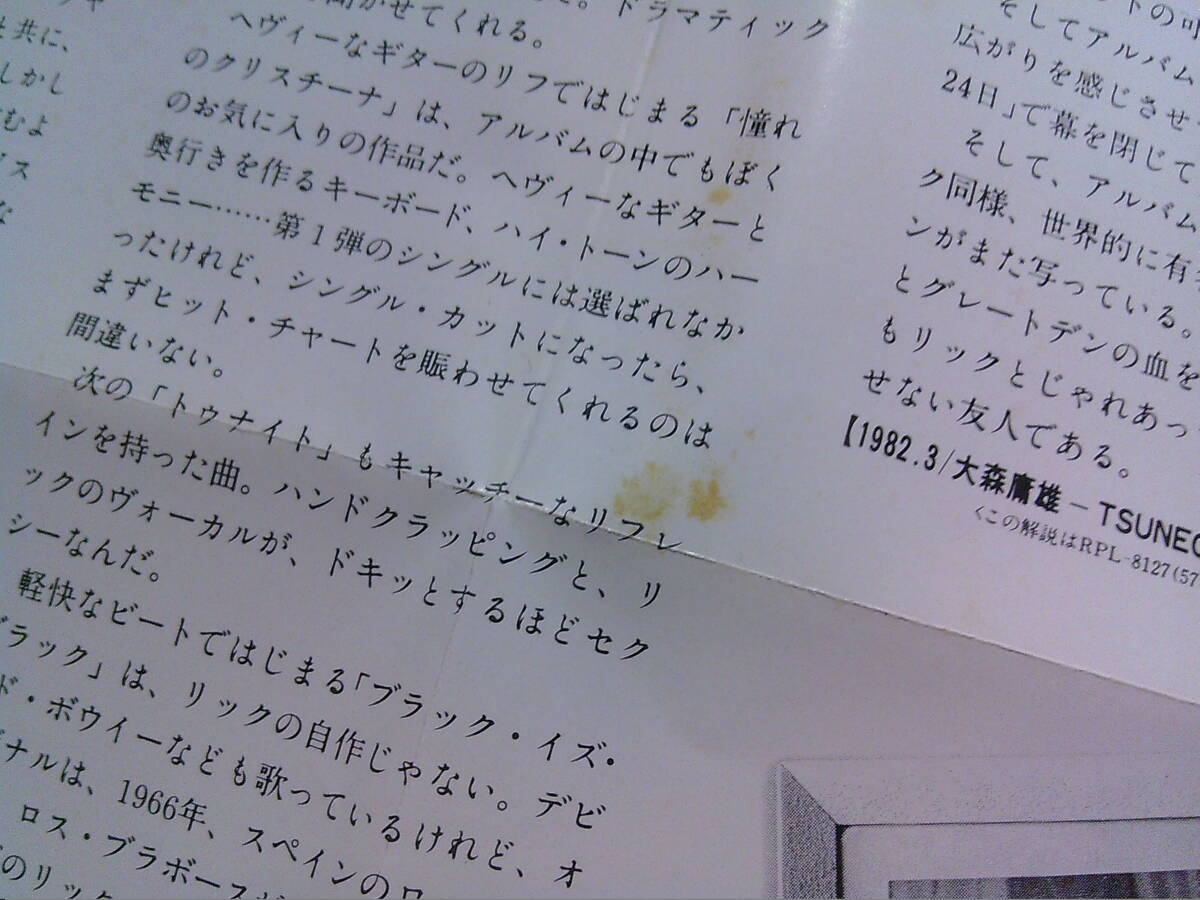 と共に、
しかし
むよ
聞かせてくれる。ドラマティック
ヘヴィーなギターのリフではじまる「憧れ
のクリスチーナ」は、アルバムの中でもぼく
のお気に入りの作品だ。ヘヴィーなギターと
奥行きを作るキーボード、ハイ・トーンのハー
モニー……第1弾のシングルには選ばれなか
ったけれど、シングル・カットになったら、
まずヒット・チャートを賑わせてくれるのは
間違いない。
次の「トゥナイト」もキャッチーなリフレ
インを持った曲。ハンドクラッピングと、リ
ックのヴォーカルが、ドキッとするほどセク
シーなんだ。
軽快なビートではじまる「ブラック・イズ・
ブラック」は、リックの自作じゃない。デビ
ド・ボウイーなども歌っているけれど、オ
ナルは、1966年、スペインの
ロス・ブラボース
のリック
トの可
そしてアルバム
広がりを感じさせ
24日」で幕を閉じて
そして、アルバム
ク同様、世界的に有
ンがまた写っている。
とグレートデンの血を
もリックとじゃれあっ
せない友人である。
【1982.3/大森庸雄－TSUNEO
〈この解説はRPL-8127(57